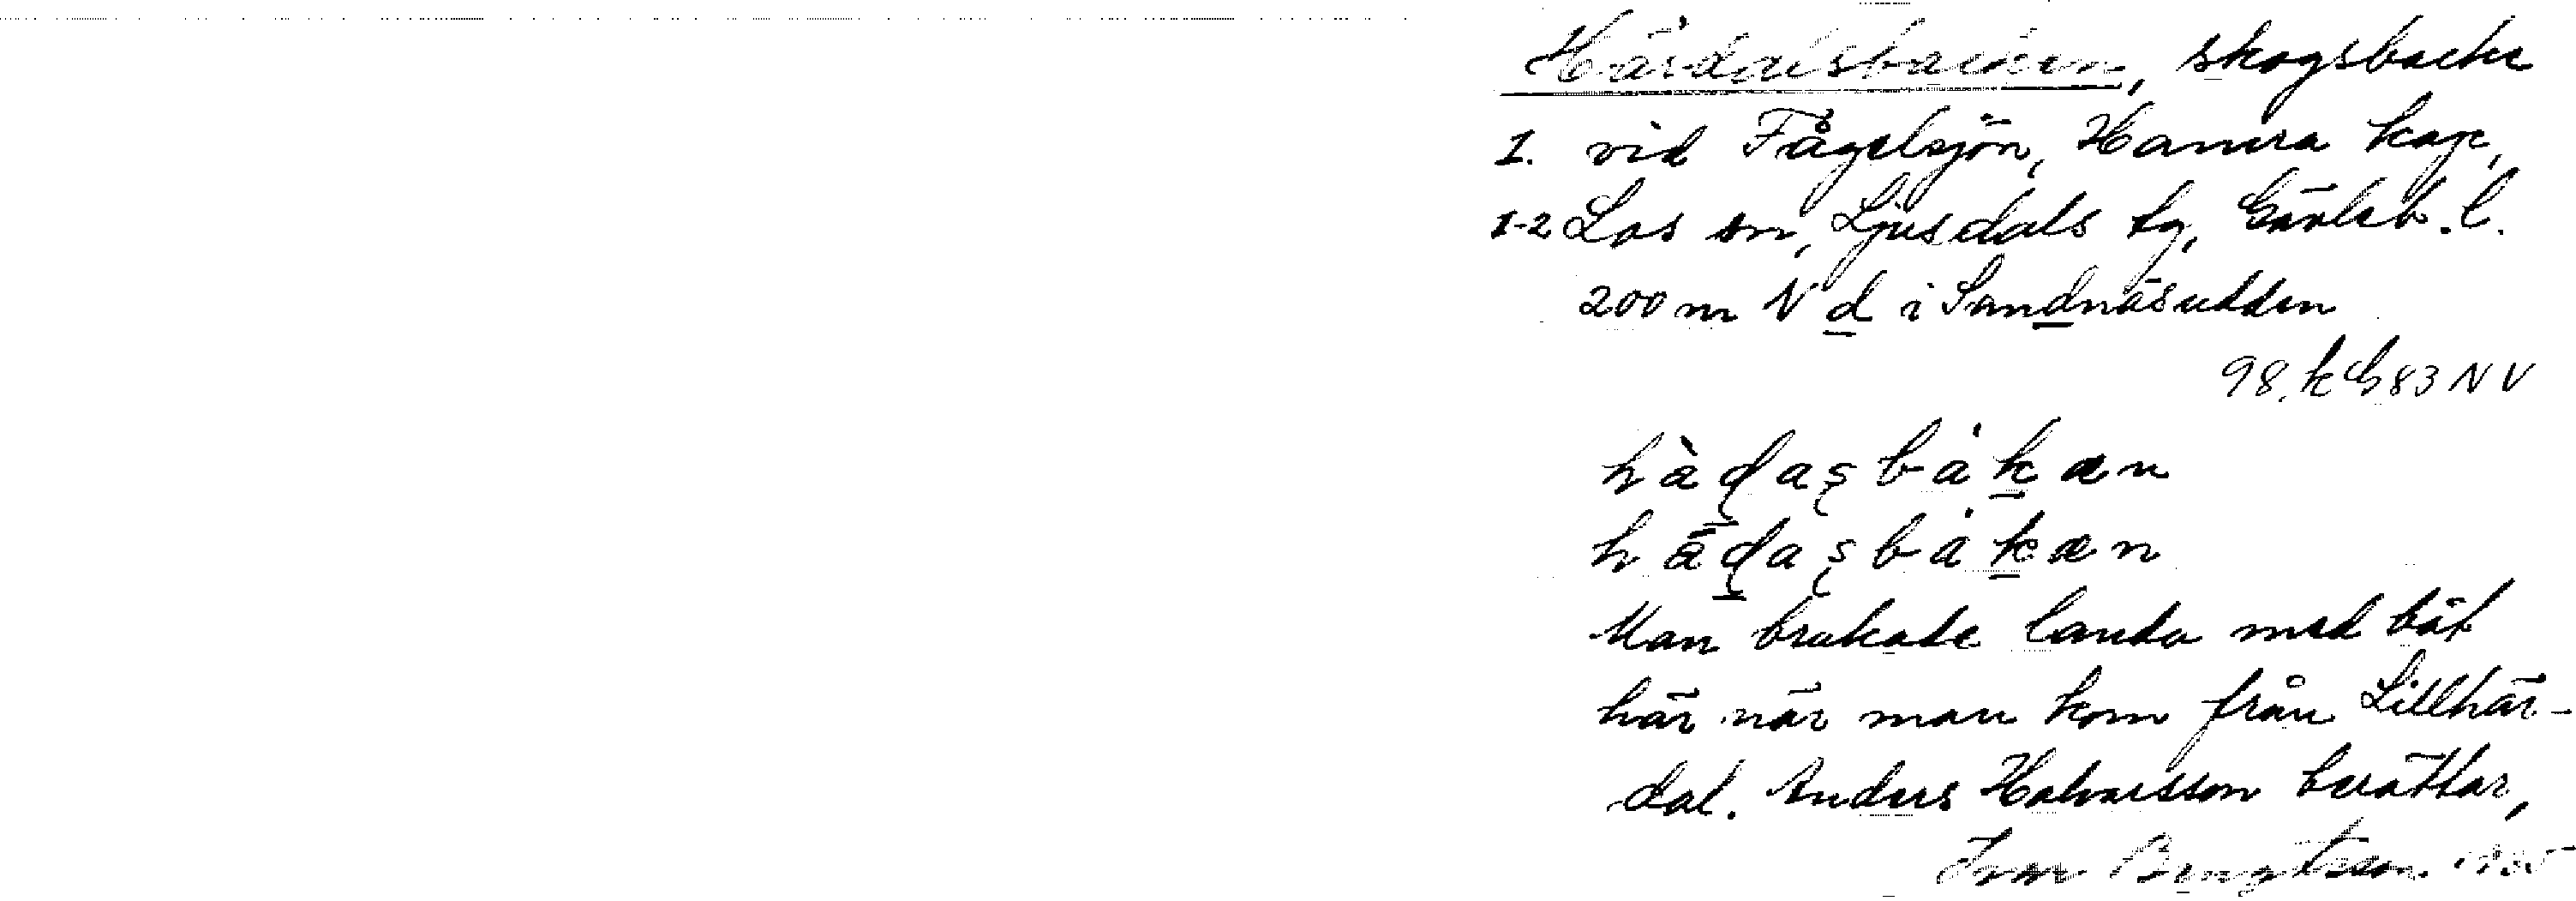 Härdalsbacken, skogsbacke
1. vid Fågelsjön, Hamra kap,
1-2 Los sn, Ljusdals tg, Gävleb. l.
200 m N d i Sandnäsudden
98 83 NV
hàdasbakæn
hā̀dasbakæn
Man brukade landa med båt
här när man kom från Lillhär-
dal. Anders Halvarsson berättar,
Ivar Bengtsson